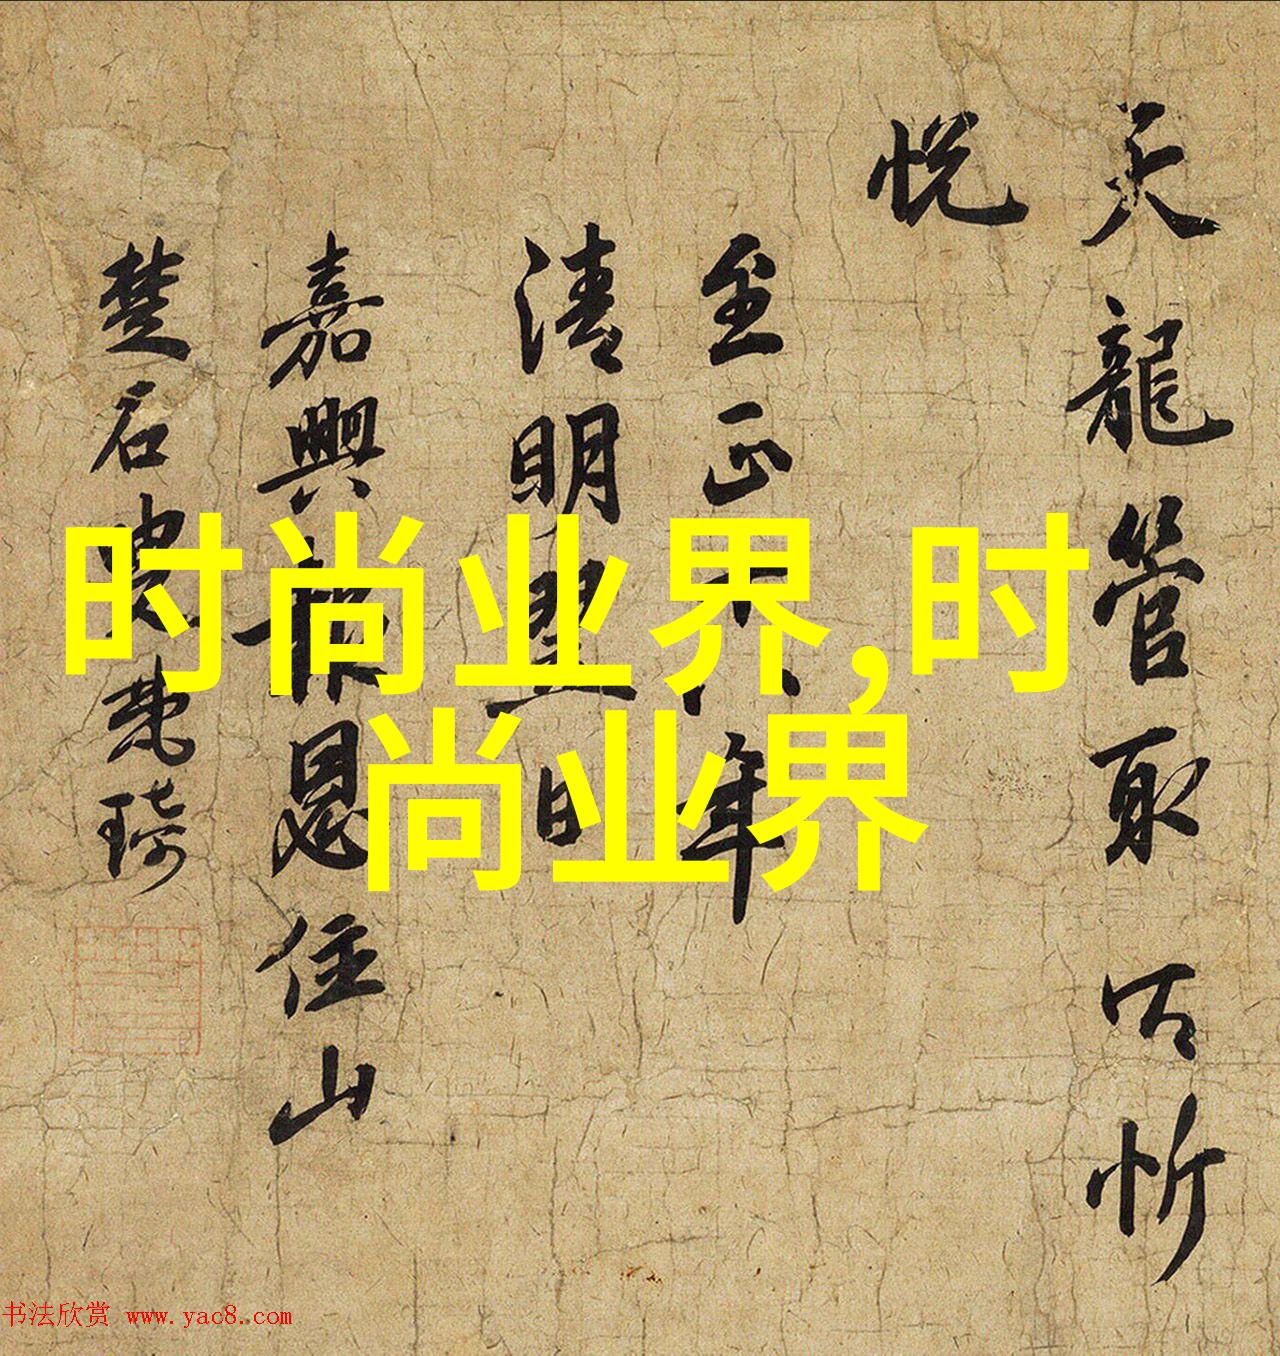 天龍管取忻
悅
至正年
清明日
嘉興報恩住山
楚石梵琦
时尚业界,时
尚业界
书法欣赏 www.yac8.com